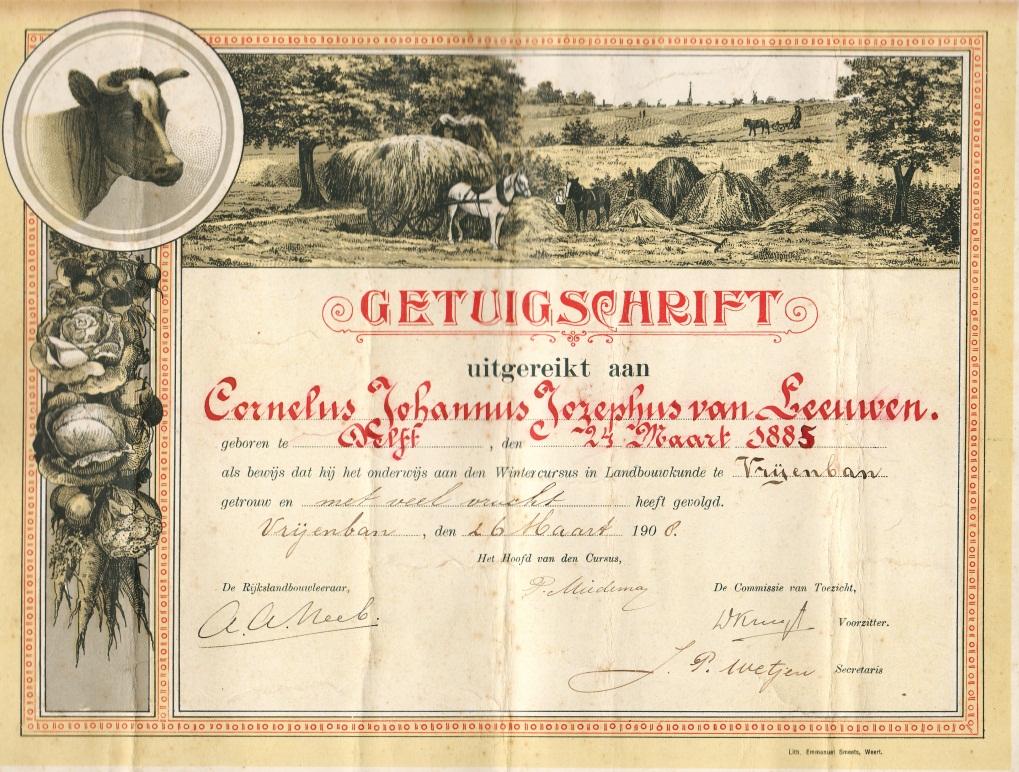 GETUIGSCHRIFT
uitgereikt aan
Cornelus Johannus Jozephus van Leeuwen.
geboren te Delft, den 24 Maart 1885
als bewijs dat hij het onderwijs aan den Wintercursus in Landbouwkunde te Vrijenban
getrouw en met veel vrucht heeft gevolgd.
Vrijenban, den 26 Maart 190
Het Hoofd van den Cursus,
De Rijkslandbouwleeraar,
P. Miedema
De Commissie van Toezicht,
A. A. Neeb.
DKruyft Voorzitter.
J. P. Wetjen Secretaris
Lith. Emmanuel Smeets, Weert.